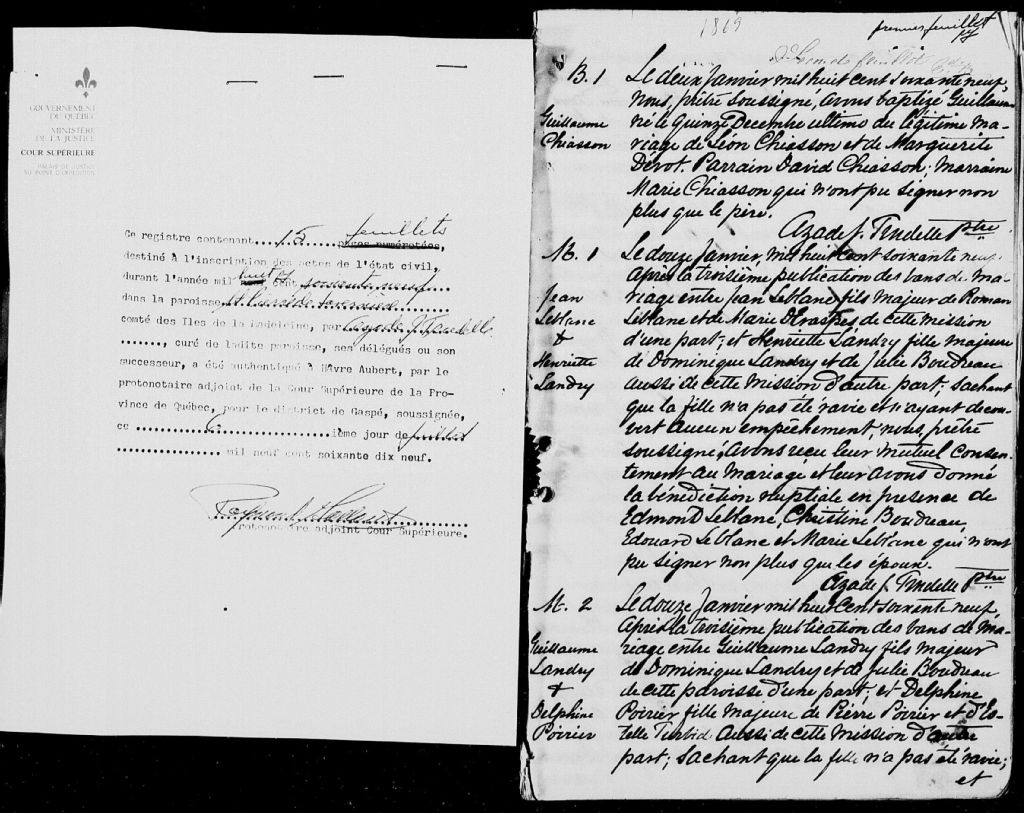 GOUVERNEMENT
DU QUÉBEC
MINISTÈRE
DE LA JUSTICE
COUR SUPÉRIEURE
PALAIS DE JUSTICE
Ce registre contenant....15.....feuillets pages numérotées,
destiné à l'inscription des actes de l'état civil,
durant l'année mil huit cent soixante neuf
dans la paroisse
comté des Iles de la Madeleine, par Azade J. Trudelle
......., curé de ladite paroisse, ses délégués ou son
successeur, a été authentiqué à Hâvre Aubert, par le
protonotaire adjoint de la Cour Supérieure de la Pro-
vince de Québec, pour le district de Gaspé, soussignée,
ce ..........6..............ième jour de juillet
................. mil neuf cent soixante dix neuf.
Protonotaire adjoint Cour Supérieure.
1869
premier feuillet
Second feuillet
B. 1
Guillaume
Chiasson
Le deux Janvier mil huit cent soixante neuf,
nous, prêtre soussigné, avons baptizé Guillaume
né le quinze Decembre ultimo du légitime ma-
riage de Léon Chiasson et de Marguerite
Dérot. Parrain David Chiasson; marraine
Marie Chiasson qui n'ont pu signer non
plus que le père.
Azade J. Trudelle Ptre
M. 1
Jean
Leblanc
&
Henriette
Landry
Le douze Janvier, mil huit cent soixante neuf
Après la troisième publication des bans de ma-
riage entre Jean Leblanc fils majeur de Romain
Leblanc et de Marie D'Eraspes de cette mission
d'une part; et Henriette Landry fille majeure
de Dominique Landry et de Julie Boudreau
aussi de cette Mission d'autre part; sachant
que la fille n'a pas été ravie et n'ayant décou-
vert aucun empêchement, nous, prêtre
soussigné, avons reçu leur mutuel consen-
tement au mariage et leur avons donné
la bénédiction nuptiale en présence de
Edmond Leblanc, Christine Boudreau,
Edouard Leblanc et Marie Leblanc qui n'ont
pu signer non plus que les époux.
Azade J. Trudelle Ptre
M. 2
Guillaume
Landry
&
Delphine
Poirier
Le douze Janvier mil huit cent soixante neuf,
Après la troisième publication des bans de ma-
riage entre Guillaume Landry fils majeur
de Dominique Landry et de Julie Boudreau
de cette paroisse d'une part; et Delphine
Poirier fille majeure de Pierre Poirier et d'Es-
telle Turbid aussi de cette mission d'autre
part; sachant que la fille n'a pas été ravie;
et